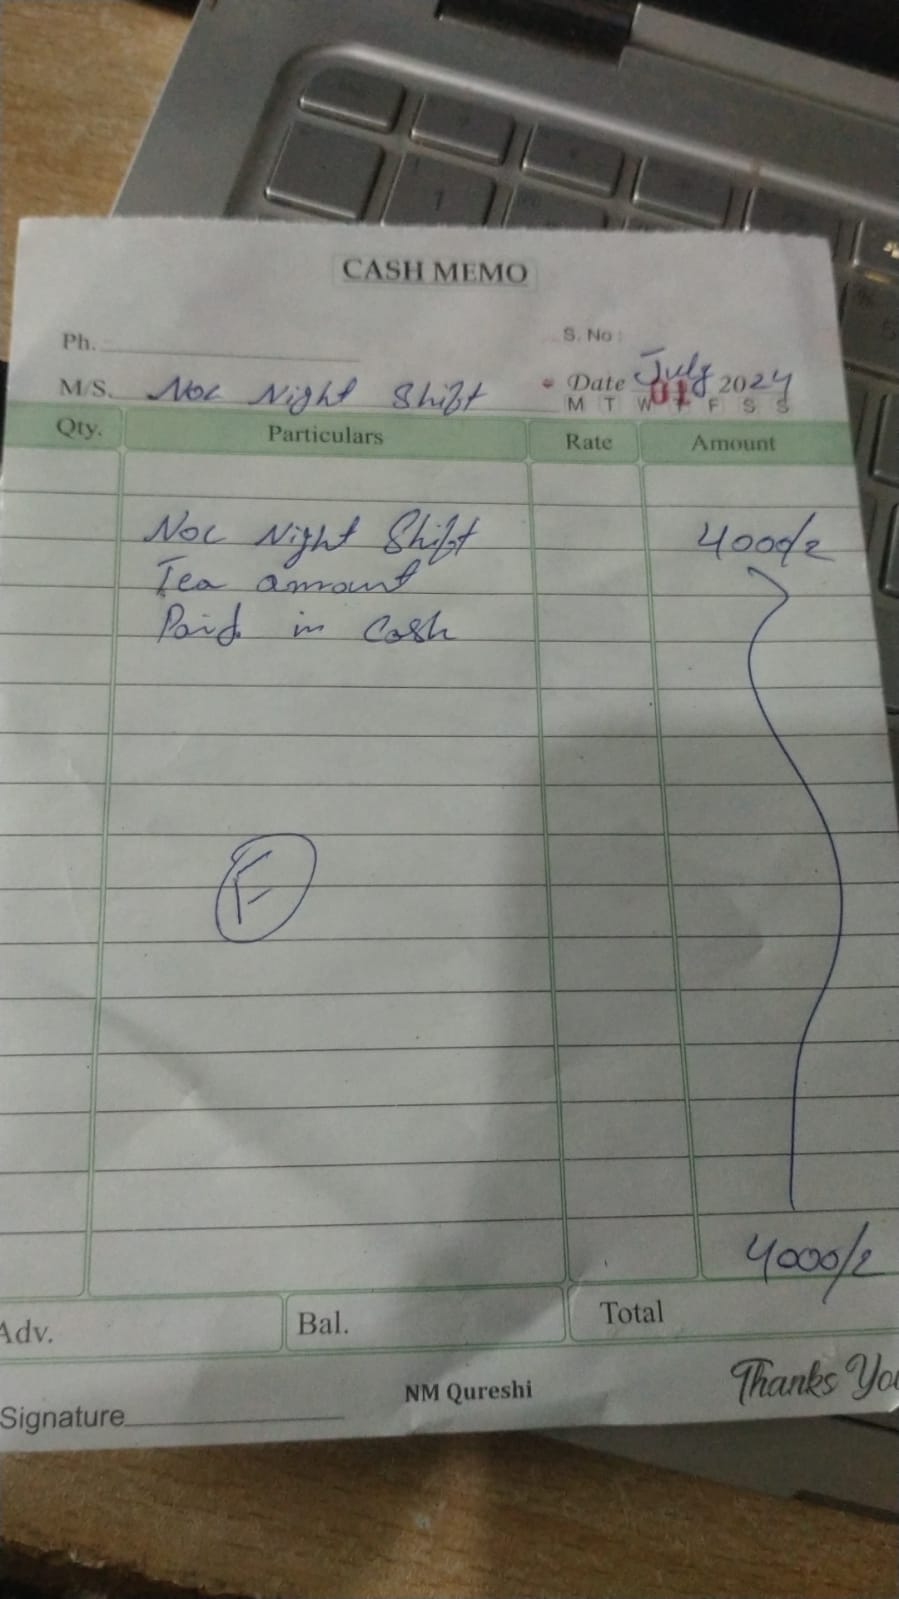 CASH MEMO
Ph.
S. No :
M/S. Noc Night Shift
Date July 2024
01
M T W T F S S
Qty. Particulars Rate Amount
Noc Night Shift 4000/=
Tea amount
Paid in Cash
F
4000/=
Adv. Bal. Total
NM Qureshi
Thanks You
Signature